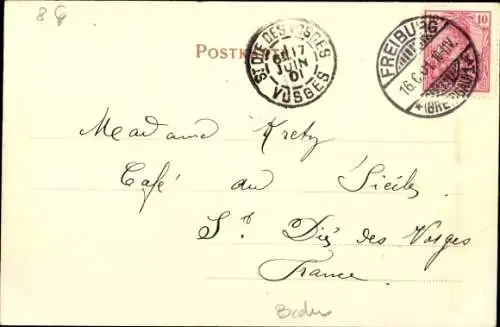 8 G
10
POSTK
ST DIE DES VOSGES
17
JUIN
01
VOSGES
FREIBURG
16.6.01
(BREISGAU)
Madame Krety
Café du Siècle
St Dié des Vosges
France
Baden